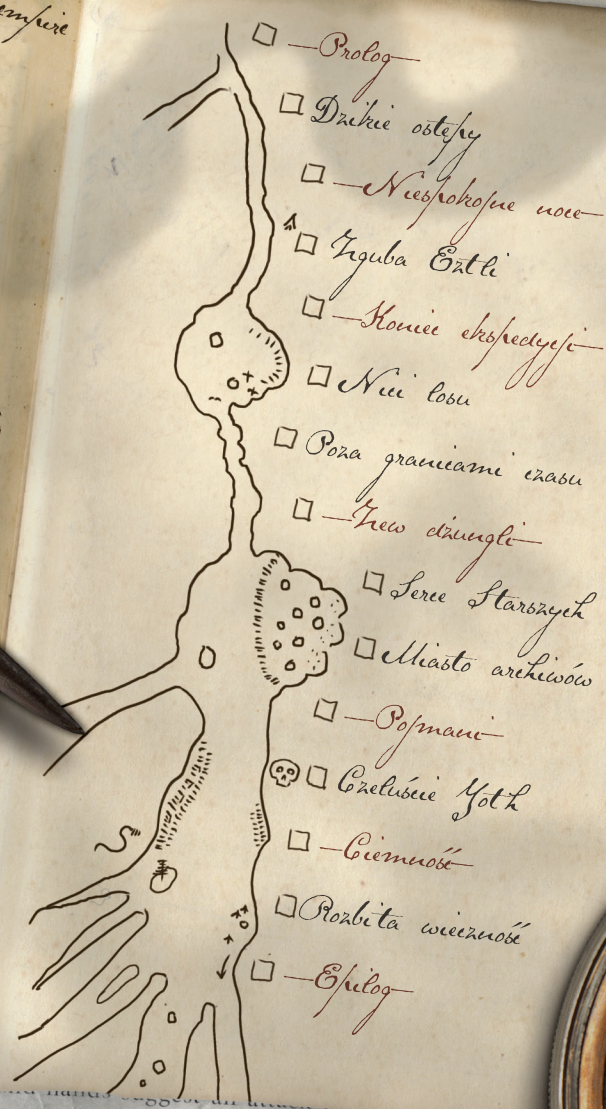 empire
Prolog
Dzikie ostępy
Niespokojne noce
Zguba Eztli
Koniec ekspedycji
Nici losu
Poza granicami czasu
Zew dżungli
Serce Starszych
Miasto archiwów
Pojmani
Czeluście Yoth
Ciemność
Rozbita wieczność
Epilog
hands suggest an attack